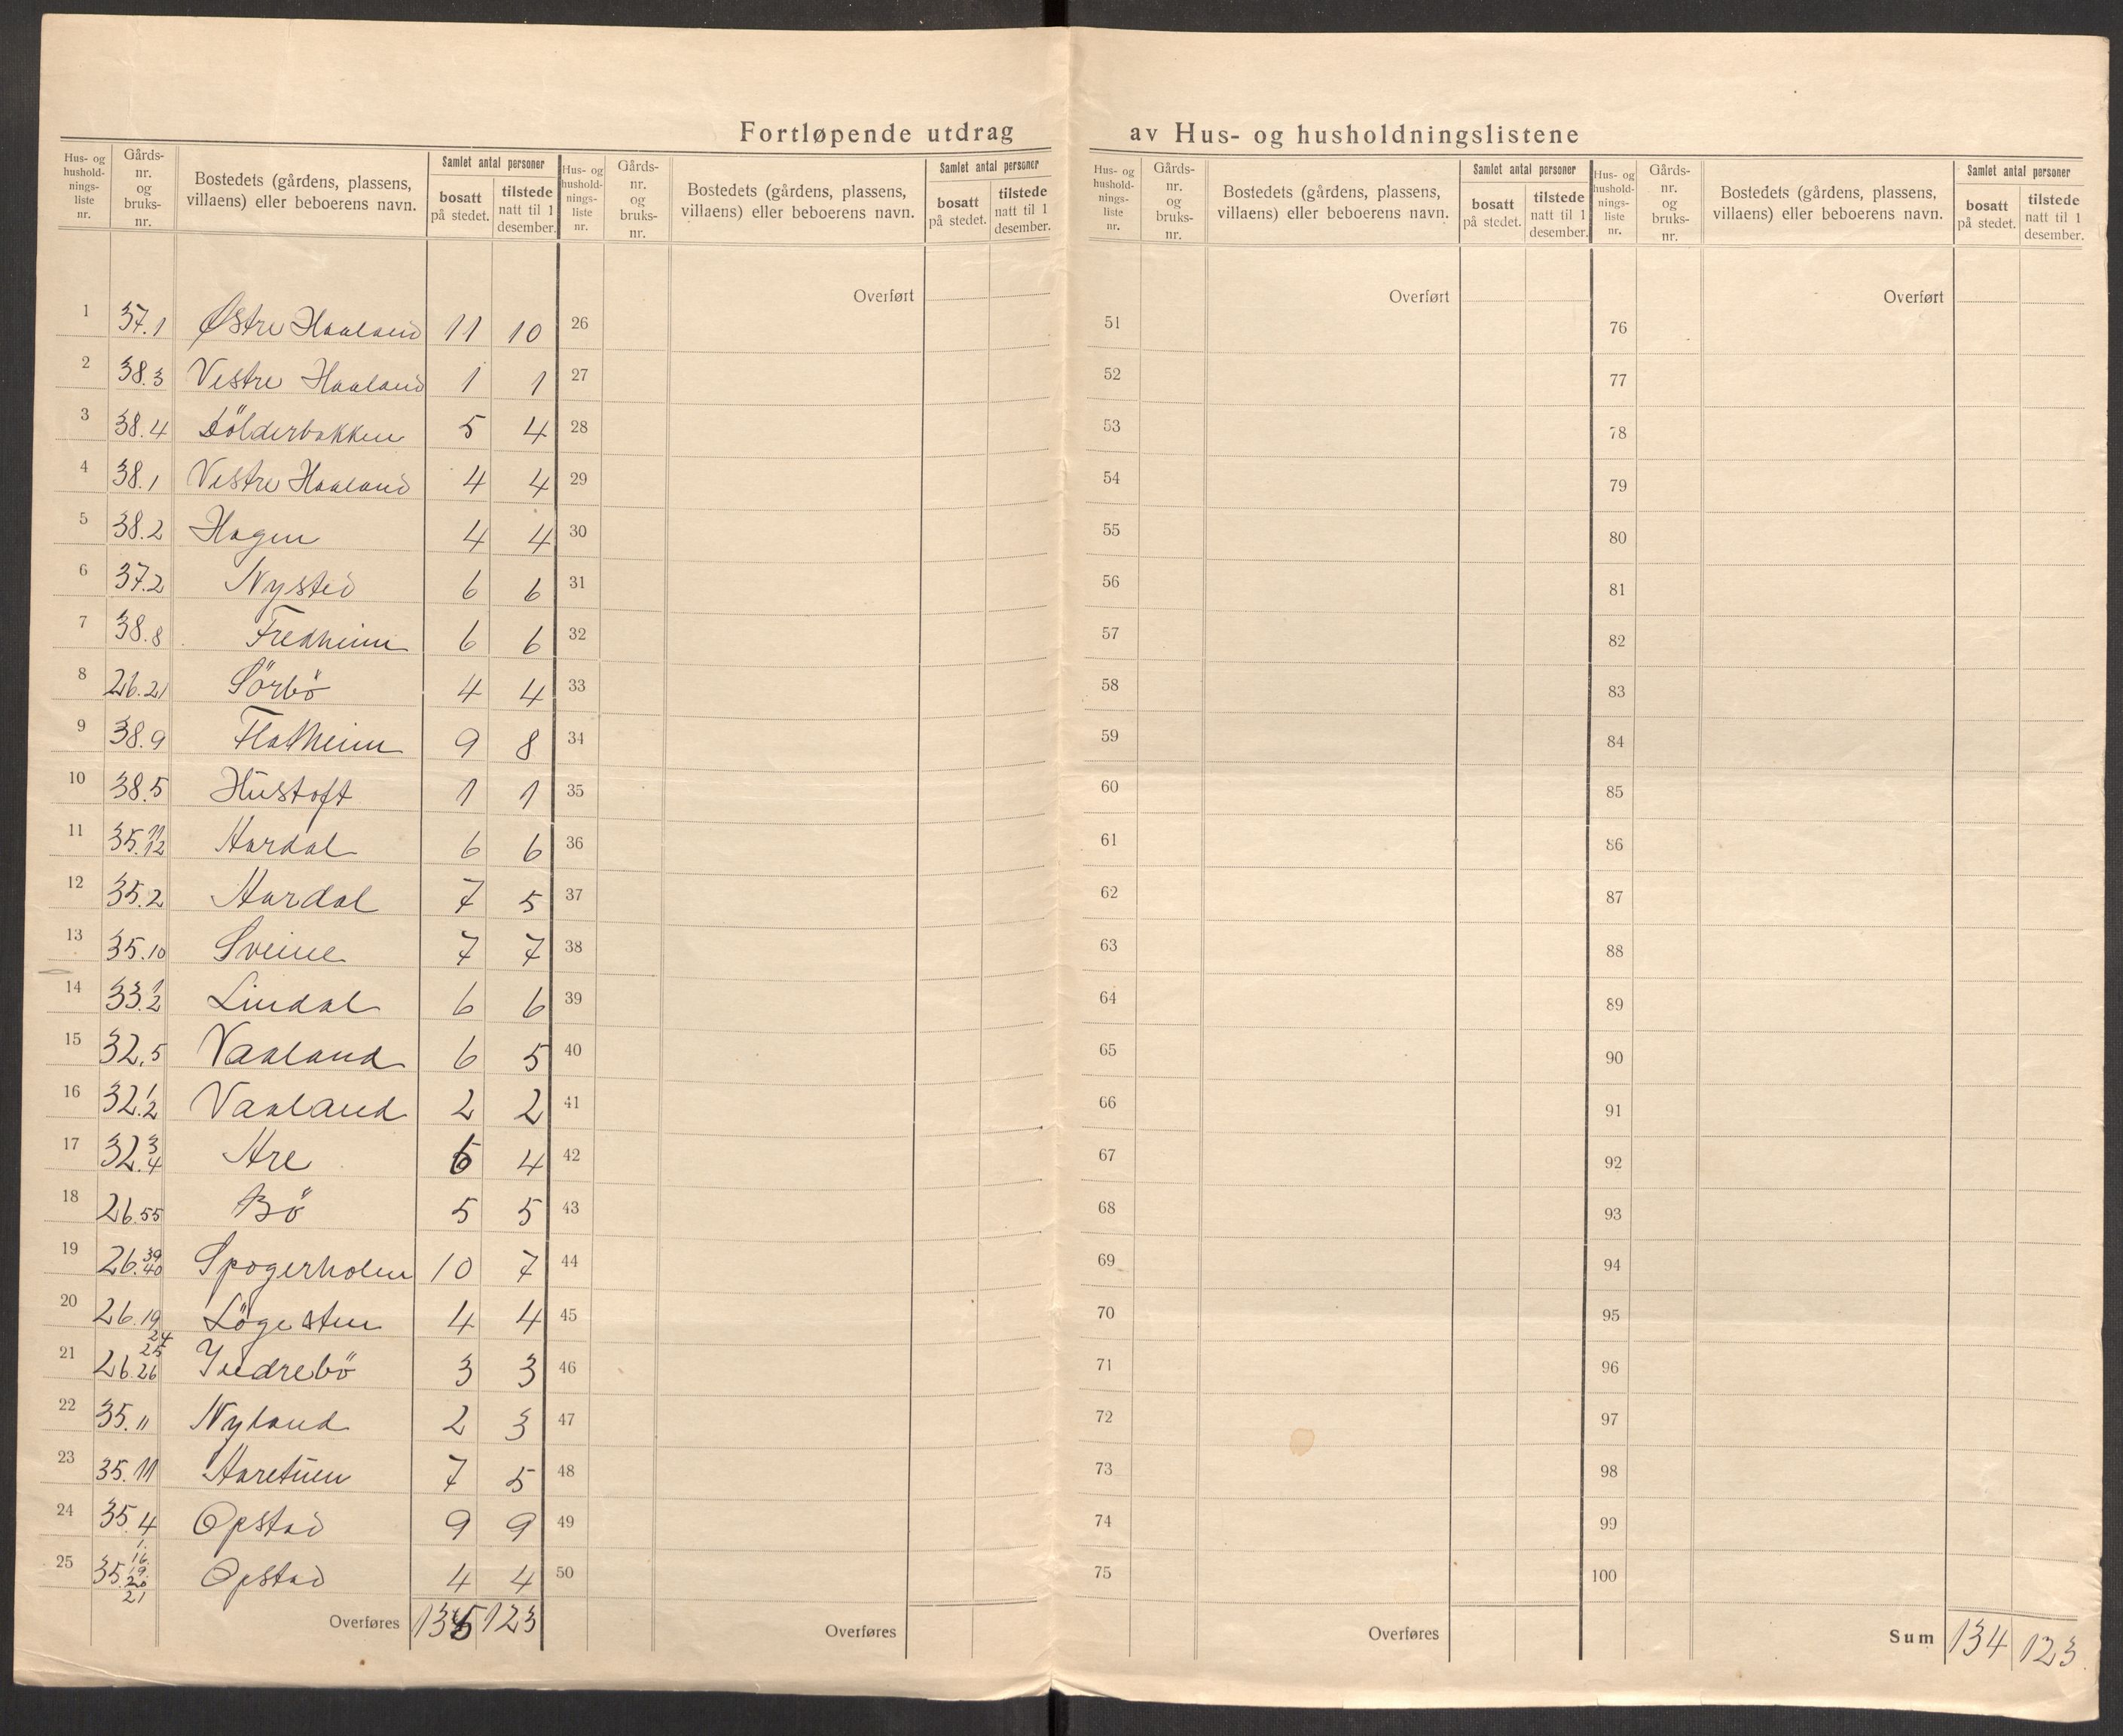 Fortløpende utdrag av Hus- og husholdningslistene
Hus- og hushold-nings-liste nr. | Gårds-nr. og bruks-nr. | Bostedets (gårdens, plassens, villaens) eller beboerens navn. | Samlet antal personer | bosatt på stedet. | tilstede natt til 1 desember.
1 37.1 Østre Haaland 11 10
2 38.3 Vestre Haaland 1 1
3 38.4 Dölderbakken 5 4
4 38.1 Vestre Haaland 4 4
5 38.2 Hagen 4 4
6 37.2 Nysted 6 6
7 38.8 Fredheim 6 6
8 26.21 Sörbö 4 4
9 38.9 Flatheim 9 8
10 38.5 Hustoft 1 1
11 35.11 12 Aardal 6 6
12 35.2 Aardal 7 5
13 35.10 Sveine 7 7
14 33.1 2 Lindal 6 6
15 32.5 Vaaland 6 5
16 32.1 2 Vaaland 2 2
17 32.3 4 Are 4
18 26.55 Bö 5 5
19 26.39 40 Spogerholen 10 7
20 26.19 Lögesten 4 4
21 26.24 25 26 Indrebö 3 3
22 35.11 Nyland 2 3
23 35.11 Aaretuen 7 5
24 35.4 Opstad 9 9
25 35.1. 16. 19. 20 21 Opstad 4 4
Overføres 135 123
Hus- og hushold-nings-liste nr. | Gårds-nr. og bruks-nr. | Bostedets (gårdens, plassens, villaens) eller beboerens navn. | Samlet antal personer | bosatt på stedet. | tilstede natt til 1 desember.
Overført
26
27
28
29
30
31
32
33
34
35
36
37
38
39
40
41
42
43
44
45
46
47
48
49
50
Overføres
Hus- og hushold-nings-liste nr. | Gårds-nr. og bruks-nr. | Bostedets (gårdens, plassens, villaens) eller beboerens navn. | Samlet antal personer | bosatt på stedet. | tilstede natt til 1 desember.
Overført
51
52
53
54
55
56
57
58
59
60
61
62
63
64
65
66
67
68
69
70
71
72
73
74
75
Overføres
Hus- og hushold-nings-liste nr. | Gårds-nr. og bruks-nr. | Bostedets (gårdens, plassens, villaens) eller beboerens navn. | Samlet antal personer | bosatt på stedet. | tilstede natt til 1 desember.
Overført
76
77
78
79
80
81
82
83
84
85
86
87
88
89
90
91
92
93
94
95
96
97
98
99
100
Sum 134 123